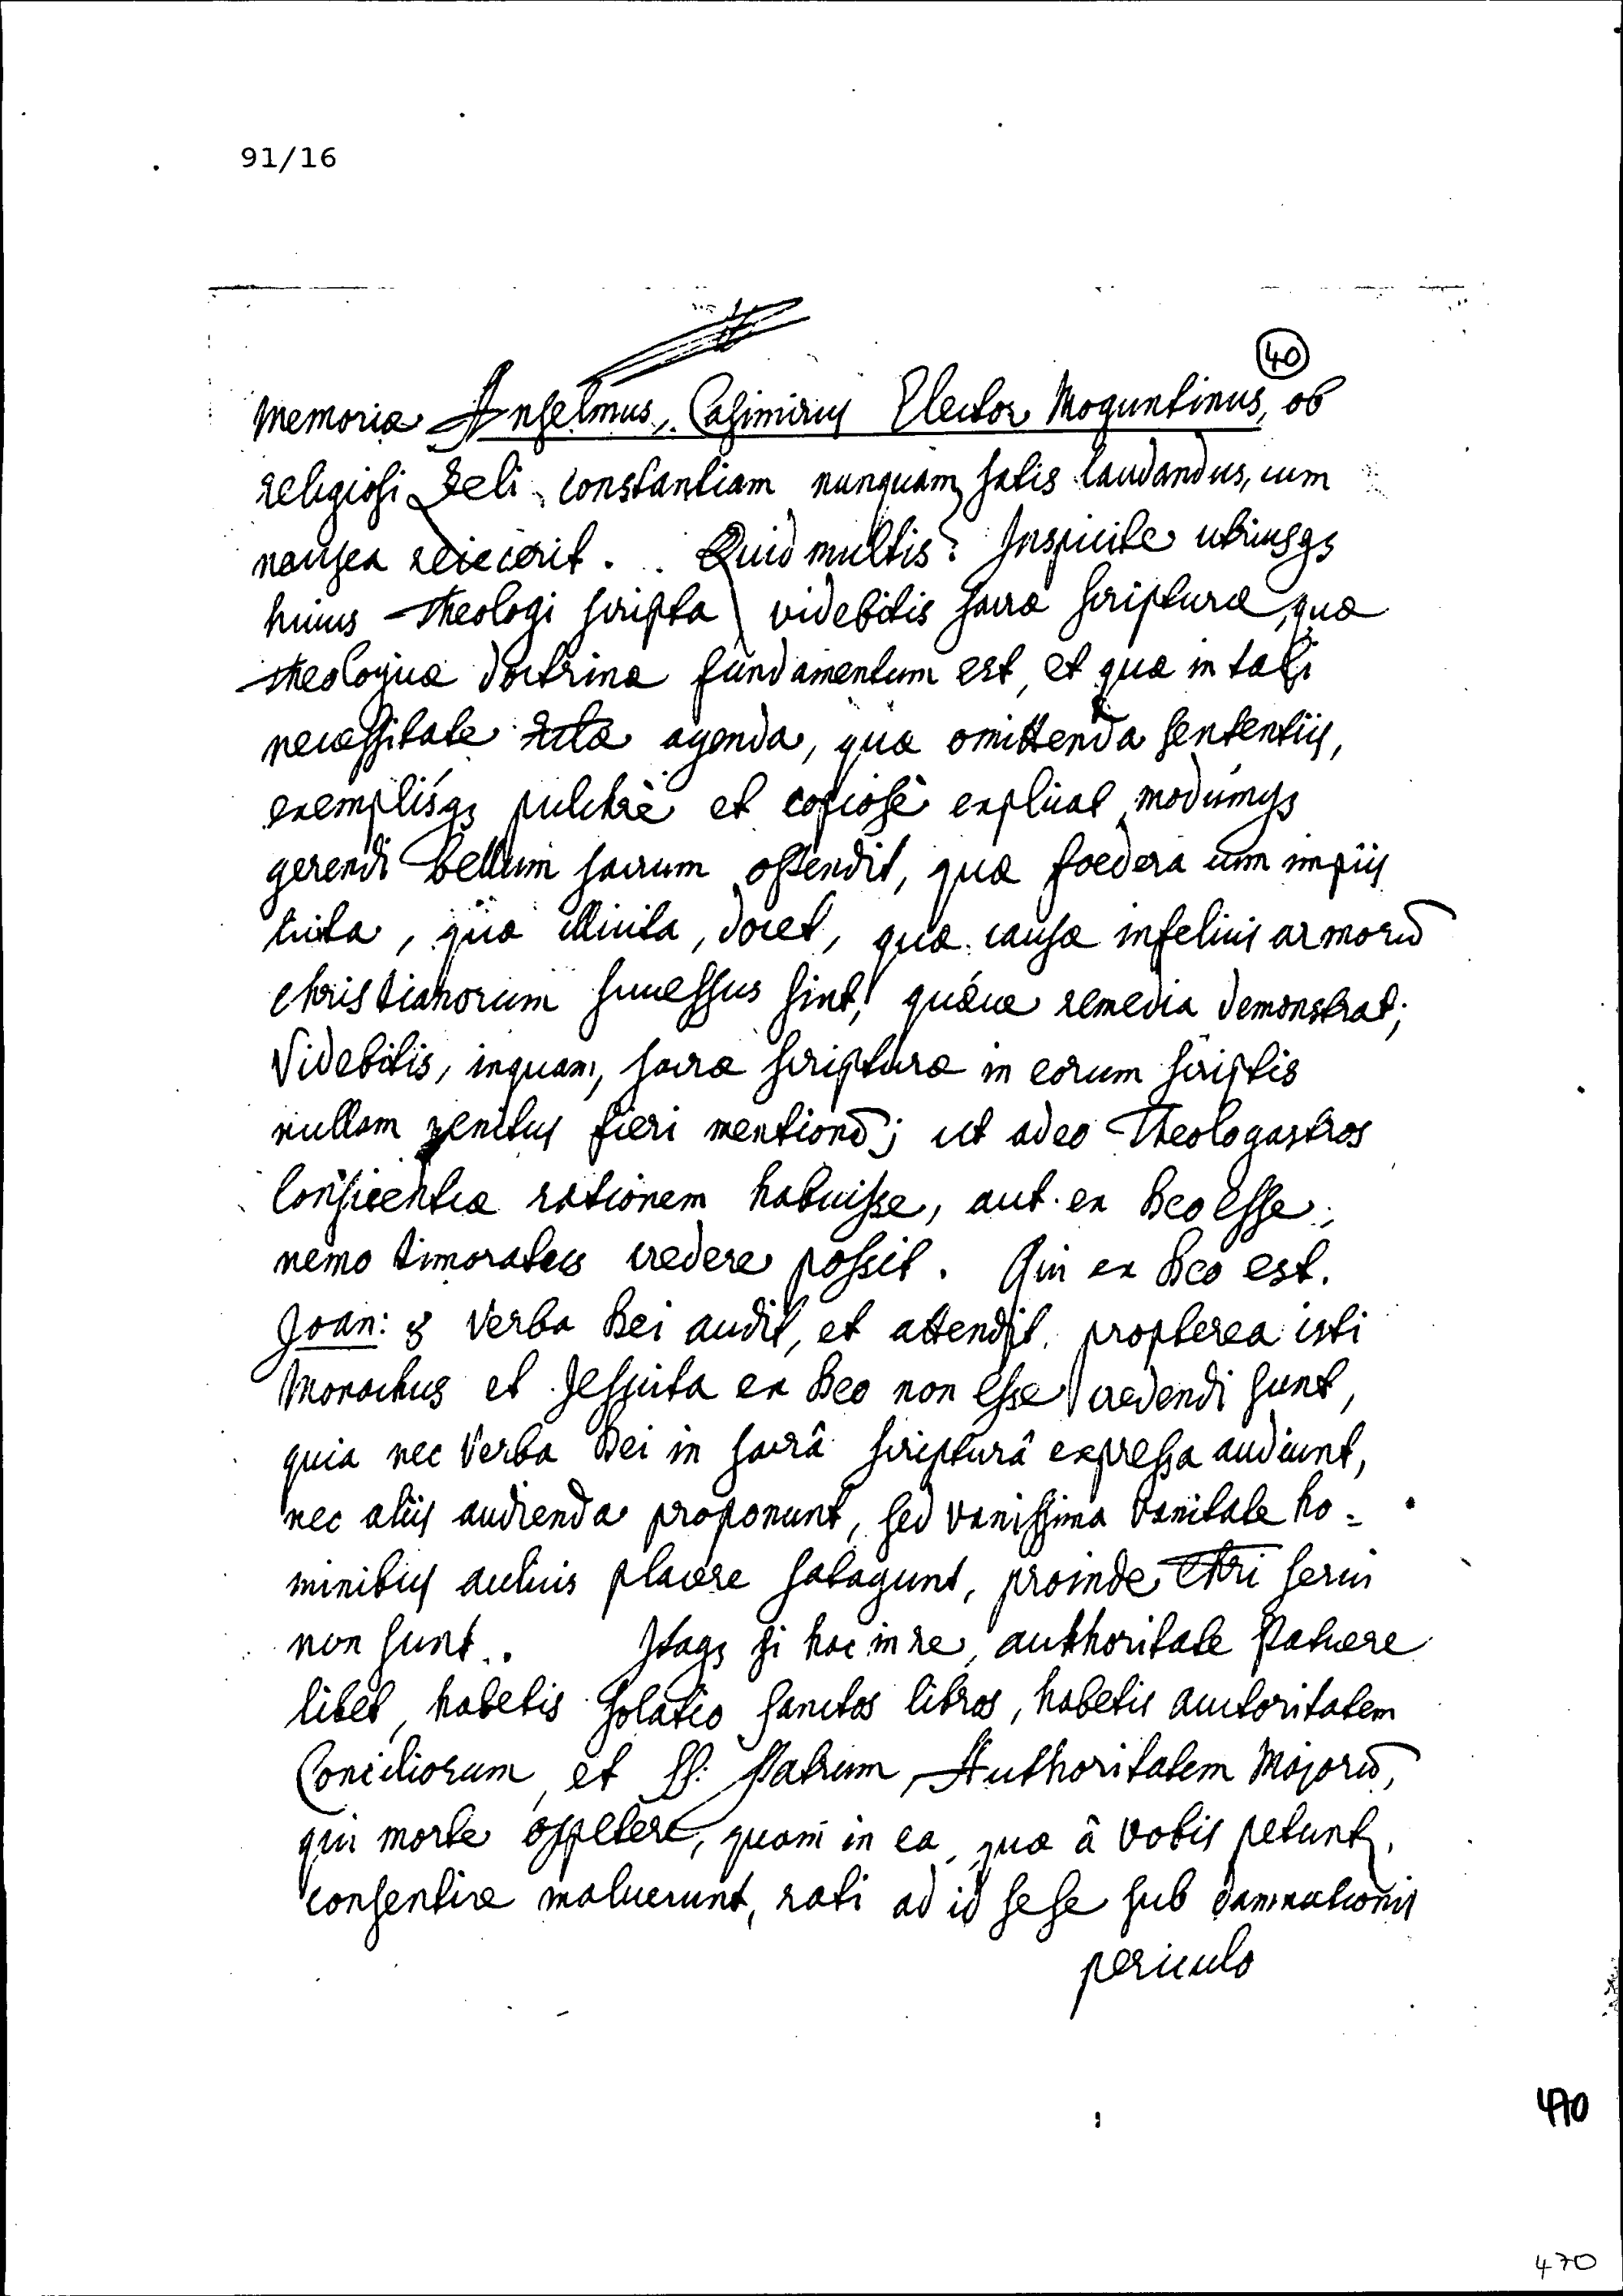 91/16
40
memoriæ Anselmus, Casimirus Elector Moguntinus, ob
religiosi zeli constantiam nunquam satis laudandus, cum
nausea reiecerit. . Quid multis? Inspicite utriusqꝫ
huius Theologi scripta videbitis sacræ scripturæ, quæ
theologicæ doctrinæ fundamentum est, et quæ in tali
necessitate agenda, quæ omittenda sententiis,
exemplísqꝫ pulchrè et copiosè explicat, modúmqꝫ
gerendi bellum sacrum ostendit, quæ foedera cum impiis
licita, quæ illicita, docet, quæ causæ infelicis armorū
christianorum successus sint, quæve remedia demonstrat;
Videbitis, inquam, sacræ scripturæ in eorum scriptis
nullam penitus fieri mentionē; ut adeo Theologastros
Conscientiæ rationem habuisse, aut ex Deo esse,
nemo timoratus credere possit. Qui ex Deo est.
Joan: 8 Verba Dei audit, et attendit. propterea isti
Monachus et Jesuita ex Deo non esse credendi sunt,
quia nec Verba Dei in sacrâ scripturâ expressa audiunt,
nec aliis audienda proponunt, sed vanissima vanitate ho=
minibus aulicis placere satagunt, proinde Chri servi
non sunt.. Itaqꝫ si hac in re, authoritate
libet, habetis solatio sanctos libros, habetis auctoritatem
Conciliorum, et SS: Patrum, Authoritatem Majorū,
qui morte oppetere, quam in ea, quæ â vobis petunt,
consentire maluerunt, rati ad id sese sub damnationis
periculo
470
470